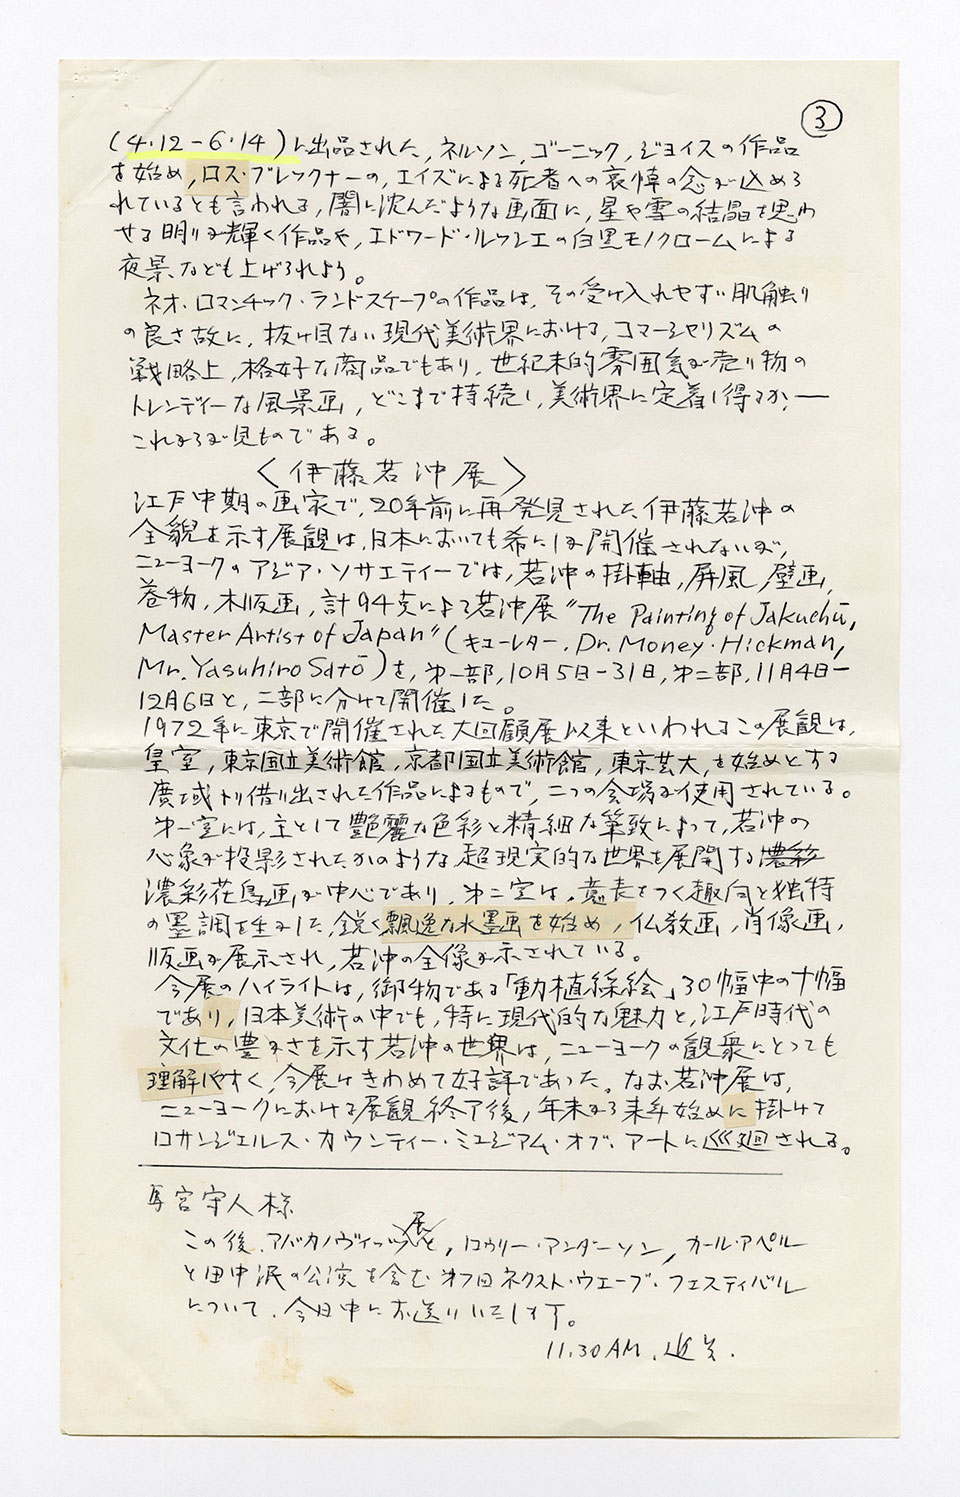 ③
(4・12−6・14)に出品された, ネルソン, ゴーニック, ジョイスの作品
を始め, ロス・ブレックナーの, エイズによる死者への哀悼の念が込めら
れているとも言われる, 闇に沈んだような画面に, 星や雪の結晶を思わ
せる明りが輝く作品や, エドワード・ルッシエの白黒モノクロームによる
夜景, なども上げられよう。
ネオ・ロマンチック・ランドスケープの作品は, その受け入れやすい肌触り
の良さ故に, 抜け目ない現代美術界における, コマーシャリズムの
戦略上, 格好な商品でもあり, 世紀末的雰囲気が売り物の
トレンディーな風景画, どこまで持続し, 美術界に定着し得るか, ―
これからが見ものである。
〈伊藤若沖展〉
江戸中期の画家で, 20年前に再発見された伊藤若沖の
全貌を示す展観は, 日本においても希にしか開催されないが,
ニューヨークのアジア・ソサエティーでは, 若沖の掛軸, 屏風, 壁画,
巻物, 木版画, 計94点による若沖展 "The Painting of Jakuchū,
Master Artist of Japan" (キューレター, Dr. Money・Hickman,
Mr. Yasuhiro Satō)を, 第一部, 10月5日−31日, 第二部, 11月4日−
12月6日と, 二部に分けて開催した。
1972年に東京で開催された大回顧展以来といわれるこの展観は,
皇室, 東京国立美術館, 京都国立美術館, 東京芸大, を始めとする
廣域より借り出された作品によるもので, 二つの会場が使用されている。
第一室には, 主として艶麗な色彩と精細な筆致によって, 若沖の
心象が投影されたかのような超現実的な世界を展開する濃彩
濃彩花鳥画が中心であり, 第二室は, 意表をつく趣向と独特
の墨調を生みした, 鋭く飄逸な水墨画を始め, 仏教画, 肖像画,
版画が展示され, 若沖の全像が示されている。
今展のハイライトは, 御物である「動植綵絵」30幅中の十幅
であり, 日本美術の中でも, 特に現代的な魅力と, 江戸時代の
文化の豊かさを示す若沖の世界は, ニューヨークの観衆にとっても
理解しやすく, 今展はきわめて好評であった。なお若沖展は,
ニューヨークにおける展観終了後, 年末から来年始めに掛けて
ロサンジェルス・カウンティー・ミュジアム・オブ・アートに巡廻される。
馬宮守人様
この後, アバカノヴィッツ展と, ロウリー・アンダーソン, カール・アペル
と田中泯の公演を含む オ7回ネクスト・ウエーブ・フェスティバル
について, 今日中にお送りいたします。
11.30AM,